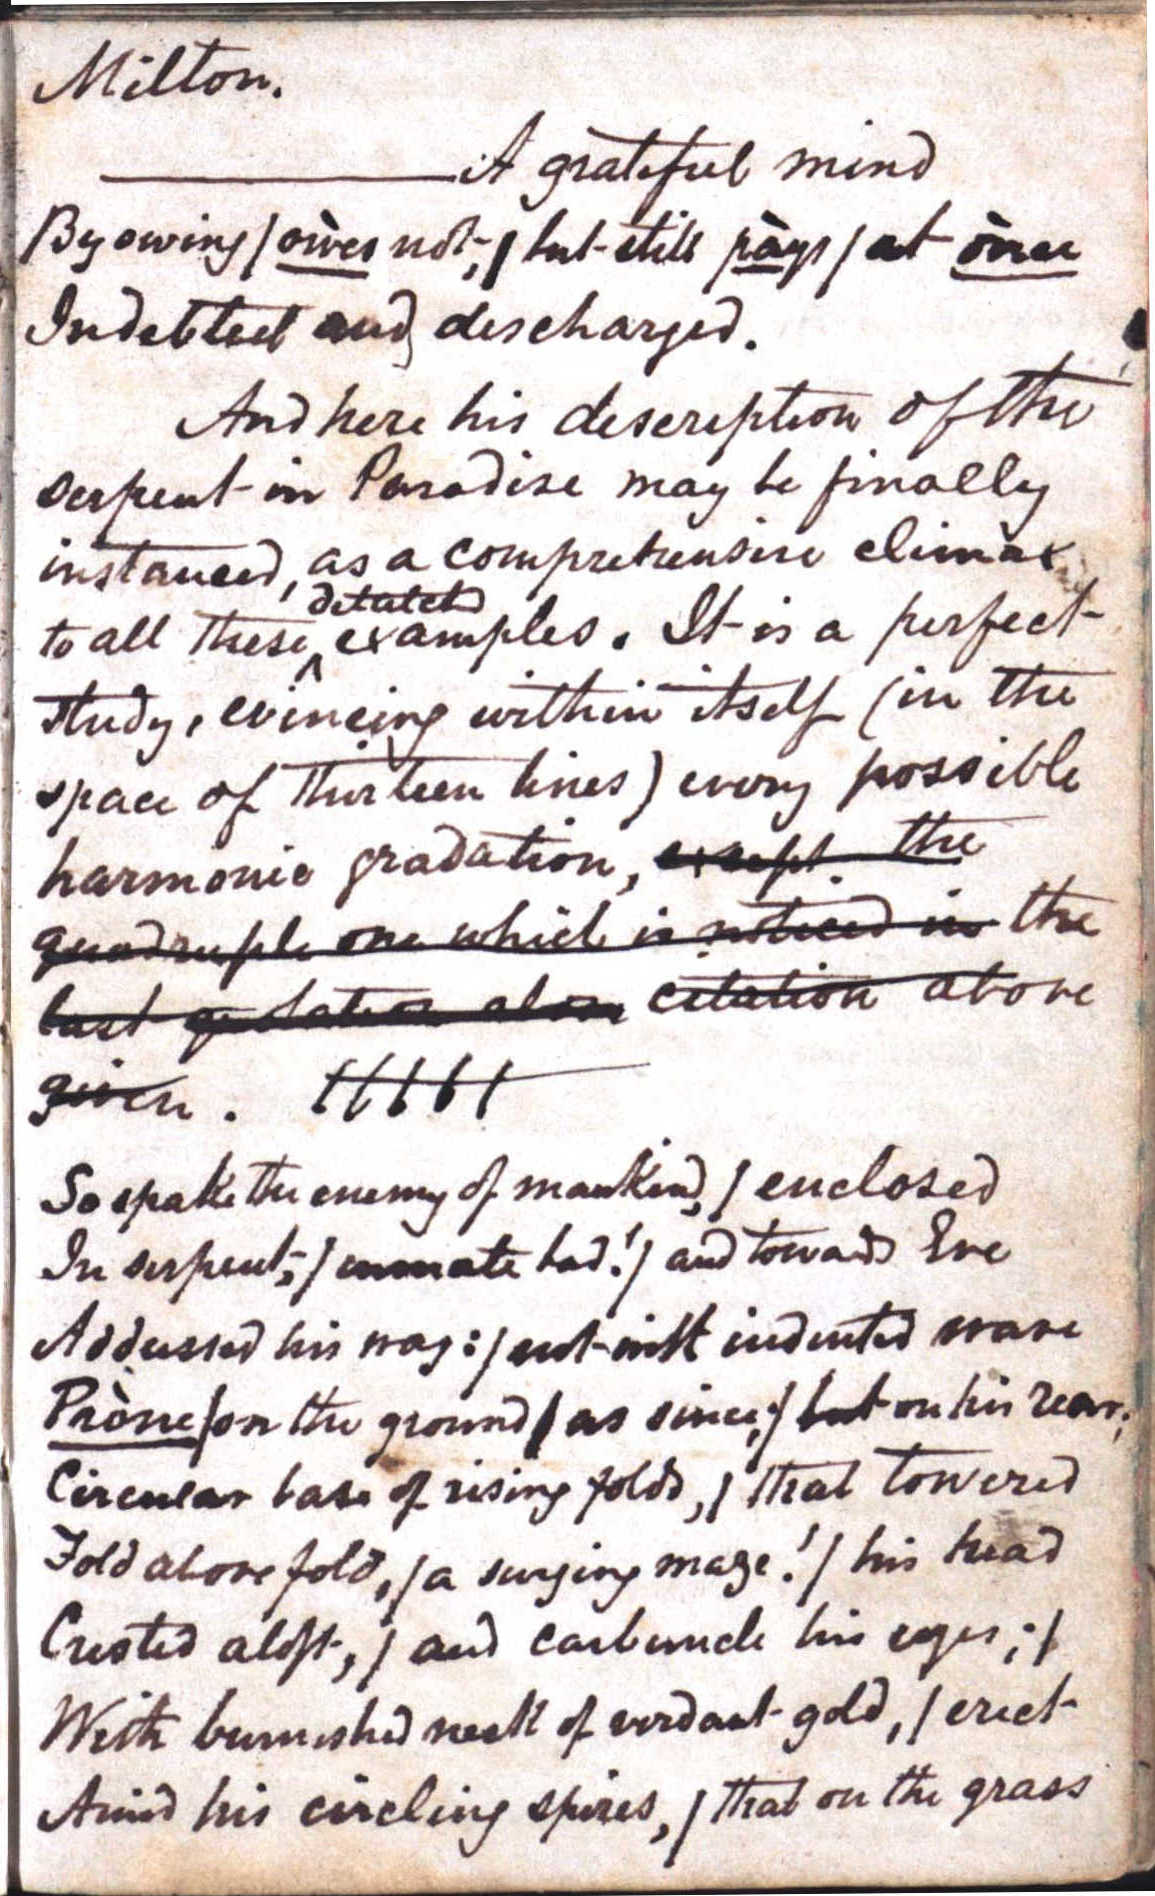 Milton.
A grateful mind
By owing / òwes not; / but still pàys / at ònce
Indebted and discharged.
And here his description of the
serpent in Paradise may be finally
instanced, as a comprehensive climax
detatch'd
to all these ^ examples. It is a perfect
study, evincing within itself (in the
space of thirteen lines) every possible
harmonic gradation, except the
quadruple one which is noticed in the
last quotation citation above
given.
So spake the enemy of mankind, / enclosed
In serpent; / inmate bad! / and towards Eve
Addressed his way: / not with indented wave
Pròne / on the ground / as since; / but on his rear;
Circular base of rising folds, / that towered
Fold above fold, / a surging maze! / his head
Crested aloft, / and carbuncle his eyes; /
With burnished neck of verdant gold, / erect
Amid his circling spires, / that on the grass